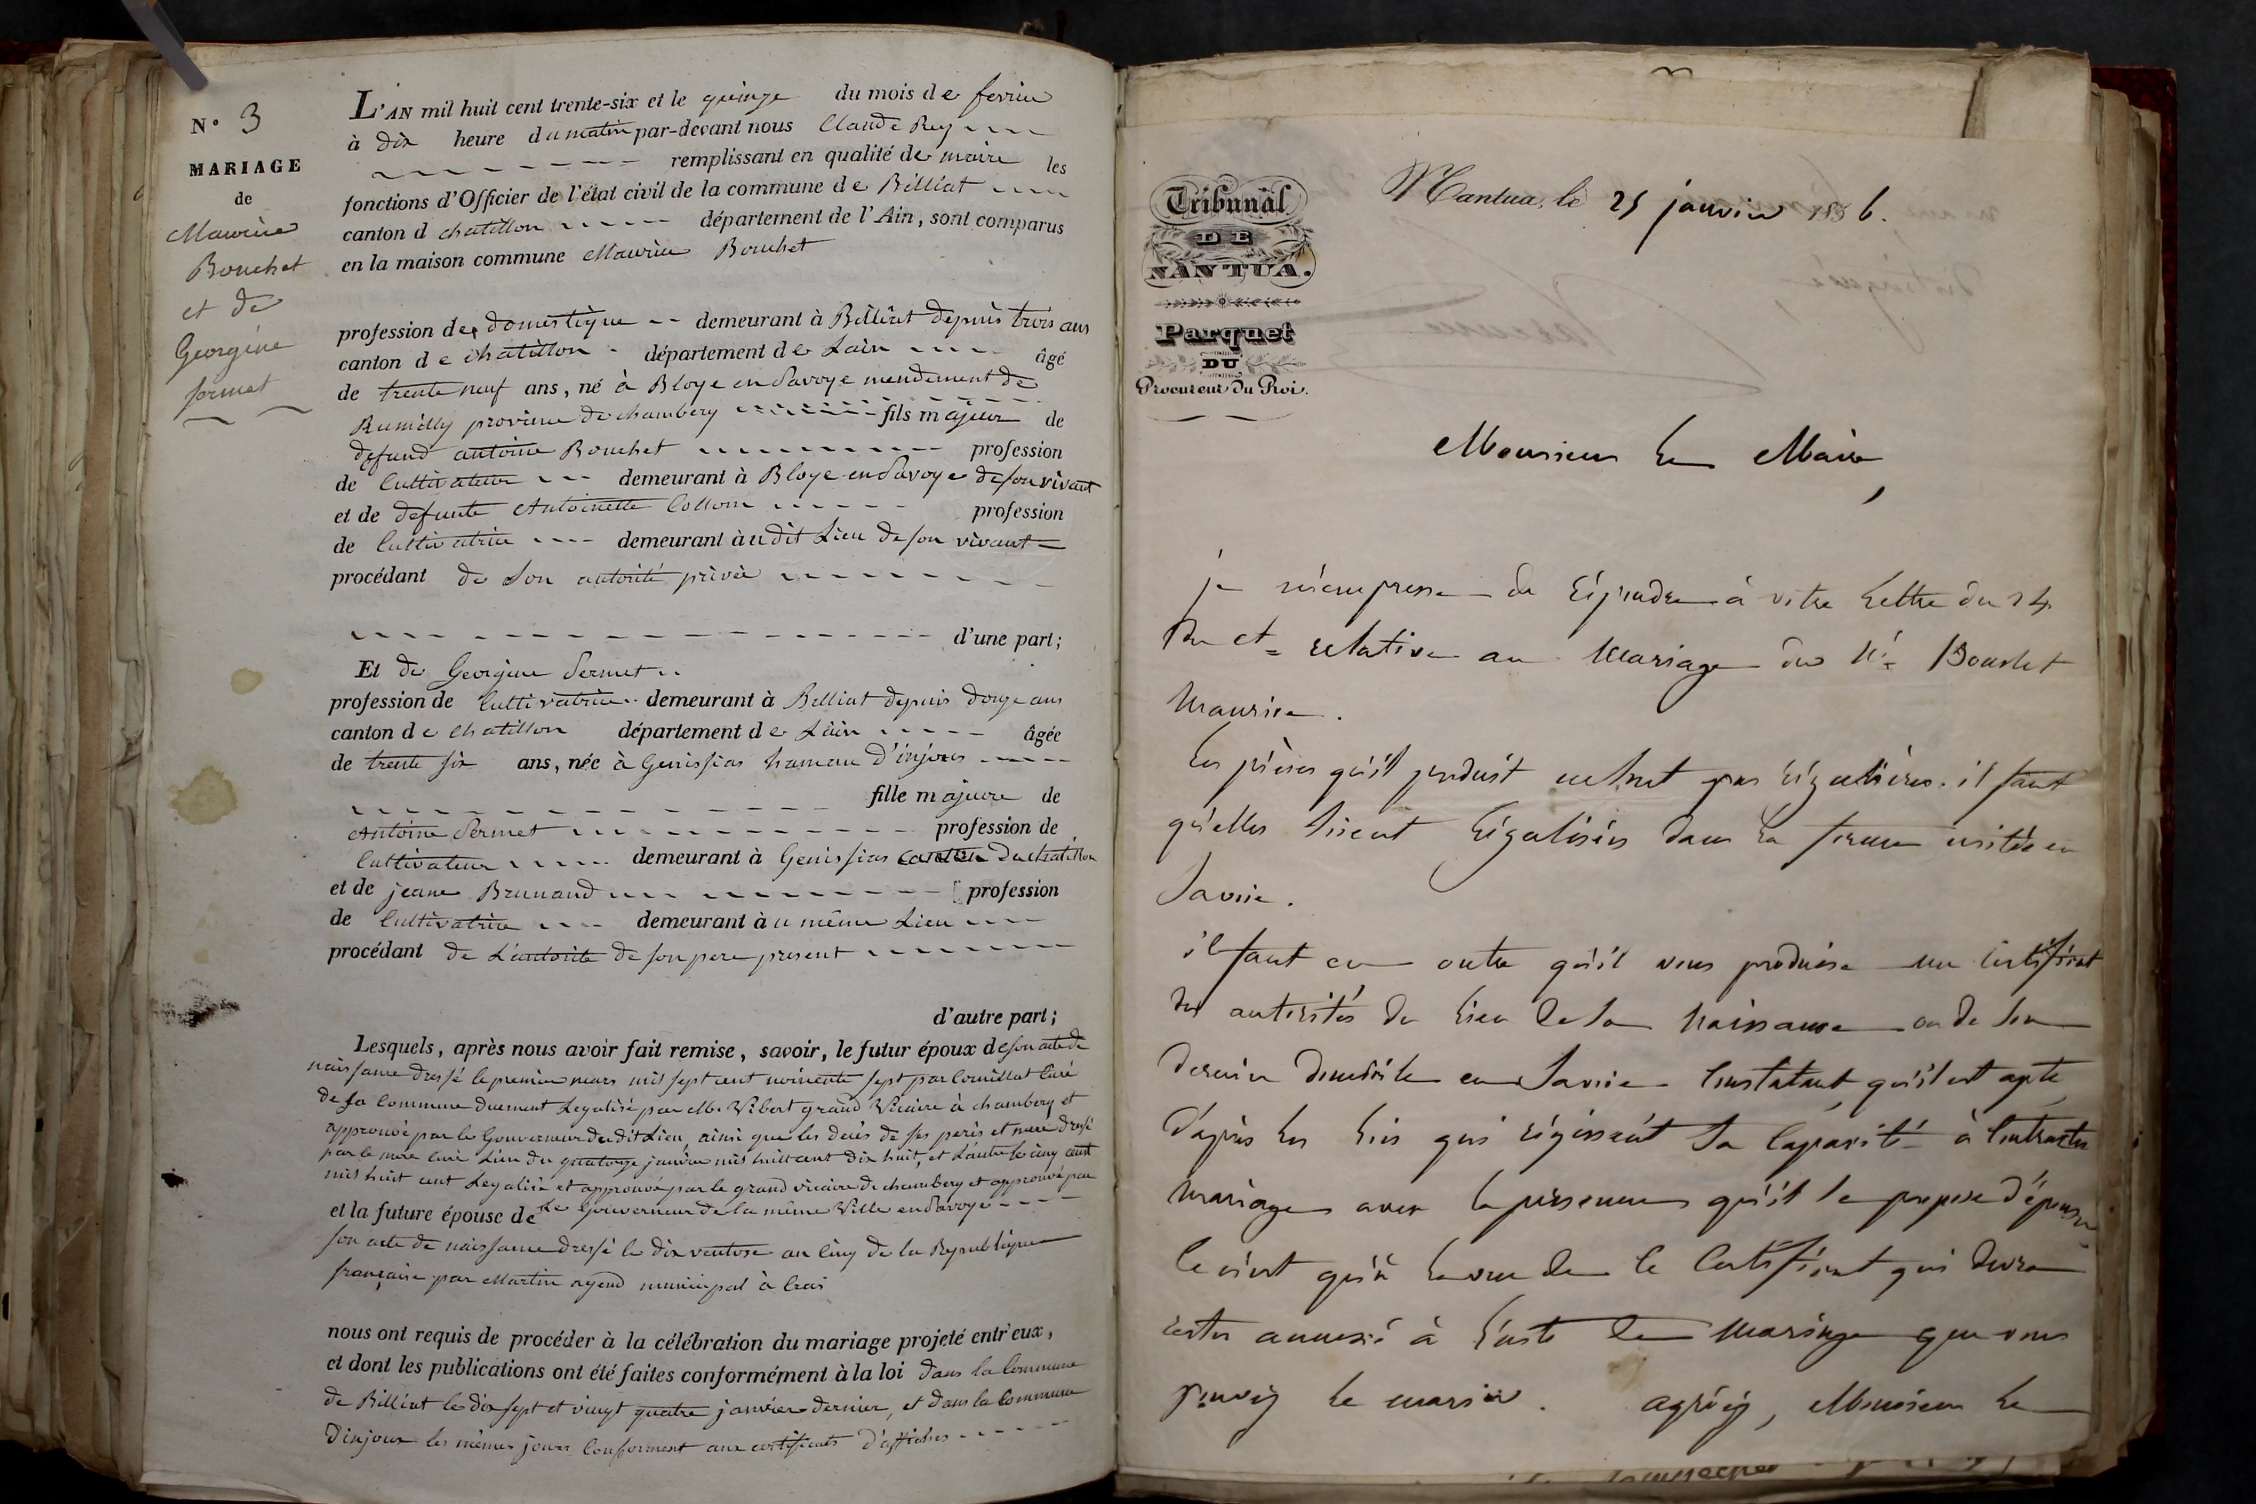 N° 3
MARIAGE
de
Maurice
Bouchet
et de
Georgine
Sermet
L'AN mil huit cent trente-six et le quinze du mois de fevrier
à dix heure du matin par-devant nous Claude Rey
remplissant en qualité de maire les
fonctions d'Officier de l'état civil de la commune de Billiat
canton d chatillon département de l'Ain, sont comparus
en la maison commune Maurice Bouchet
profession de domestique demeurant à Billiat depuis trois ans
canton de chatillon département de Lain âgé
de trente neuf ans, né à Bloye en Savoye mendement de
Rumilly province de chambery fils majeur de
defund antoine Bouchet profession
de Cultivateur demeurant à Bloye en Savoye de son vivant
et de defunte Antoinette profession
de Cultivatrice demeurant àudit Lieu de son vivant
procédant de Son autorité privée
d'une part;
Et de Georgine Sermet
profession de Cultivatrice demeurant à Billiat depuis douze ans
canton de chatillon département de Lain âgée
de trente six ans, née à Genissias hamau d'injoux
fille majeure de
Antoine Sermet profession de
Cultivateur demeurant à Genissias canton de chatillon
et de jeane Brunand profession
de Cultivatrice demeurant àu même Lieu
procédant de L'autorite de son pere present
d'autre part;
Lesquels, après nous avoir fait remise, savoir, le futur époux de son acte de
naissance dressé le premier mars mil sept cent noinente sept par Curé
de sa Commune duement Legalisé par Mr. Vibert grand Vicaire à chambery et
approuvé par le Gouverneur dudit Lieu, ainsi que les decés de ses peres et mere dressé
par le meme curé L'un du quatorze janvier mil huit cent dix huit, et L'autre le cinq
mil huit cent Legalisé et approuvé par le grand vicaire de chambery et approuvé par
et la future épouse de Le Gouverneur de la même Ville en Savoye
son acte de naissance dressé le dix ventose an Cinq de la Republique
française par Martin agend municipal à
nous ont requis de procéder à la célébration du mariage projeté entr'eux,
et dont les publications ont été faites conformément à la loi dans la Commune
de Billiat le dix sept et vingt quatre janvier dernier, et dans la Commune
Dinjoux les mêmes jours Conforment aux certificats d'affiches
Tribunal
DE
NANTUA.
Parquet
DU
Procureur du Roi.
Nantua, le 25 janvier 1836.
Monsieur le Maire,
je m'empresse de répondre à votre lettre du 24
du ct relative au mariage du Né Bouchet
Maurice.
Les pièces qu'il produit ne sont pas régulières. il faut
qu'elles soient légalisées dans la forme usitée en
Savoie.
il faut en outre qu'il vous produise un certificat
des autorités du lieu de sa naissance ou de son
dernier domicile en Savoie constatant qu'il est apte,
d'après les lois qui régissent sa capacité à contracter
mariage avec la personne qu'il se propose d'épouser
ce n'est qu'à la vue de ce certificat qui devra
rester annexé à l'acte de mariage que vous
pouvez le marier. agréez, Monsieur le